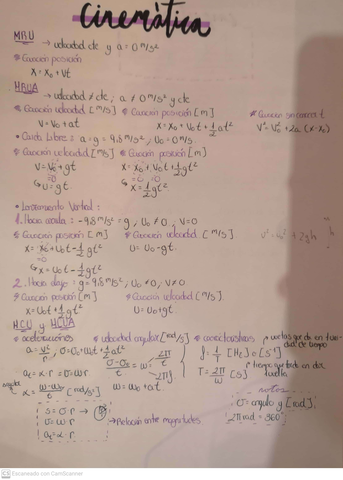 Cinemática
MRU → velocidad cte y a = 0 m/s²
• Ecuación posición
x = x₀ + vt
MRUA → velocidad ≠ cte; a ≠ 0 m/s² y cte
• Ecuación velocidad [m/s] • Ecuación posición [m] • Ecuación sin correr t
v = v₀ + at x = x₀ + v₀t + ½at² v² = v₀² + 2a (x - x₀)
• Caída Libre: a = g = 9,8 m/s², v₀ = 0 m/s
• Ecuación velocidad [m/s] • Ecuación posición [m]
v = v₀ + gt x = x₀ + v₀t + ½gt²
=0 =0 =0
↳ v = gt. ↳ x = ½gt²
• Lanzamiento Vertical:
1. Hacia arriba: -9,8 m/s² = g, v₀ ≠ 0, v = 0
• Ecuación posición [m] • Ecuación velocidad [m/s]
x = x₀ + v₀t - ½gt² v = v₀ - gt.
↳ x = v₀t - ½gt²
2. Hacia abajo: g = 9,8 m/s², v₀ ≠ 0, v ≠ 0
• Ecuación posición [m] • Ecuación velocidad [m/s].
x = v₀t + ½gt² v = v₀ + gt
MCU y MCUA
• aceleraciones • velocidad angular [rad/s] • características
a = v²/r
f = 1/T [Hz] o [s⁻¹]
T = 2π/ω [s]
angular
ω = ω₀ + αt
notas
σ = ángulo y [rad]
2π rad = 360°
s = σ r →
v = ω r → Relación entre magnitudes
aₜ = α r
CS Escaneado con CamScanner